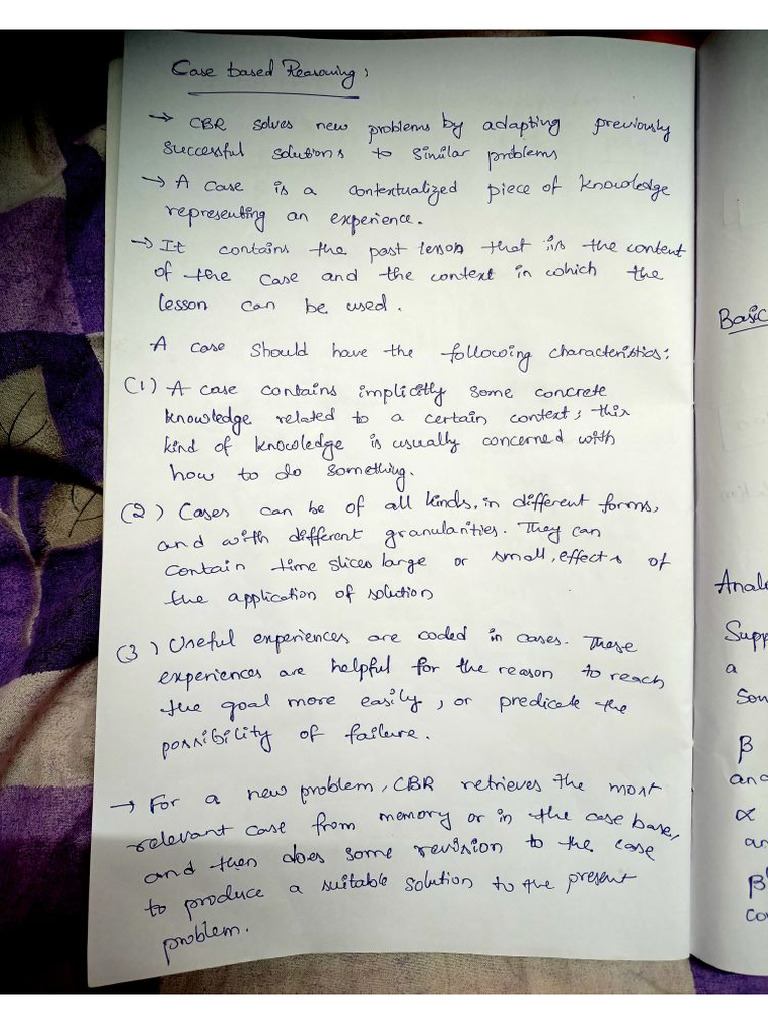 Case based Reasoning:
→ CBR solves new problems by adapting previously
successful solutions to similar problems
→ A case is a contextualized piece of knowledge
representing an experience.
→ It contains the past lesson that is the content
of the case and the context in which the
lesson can be used.
A case should have the following characteristics:
(1) A case contains implicitly some concrete
knowledge related to a certain context; this
kind of knowledge is usually concerned with
how to do something.
(2) Cases can be of all kinds, in different forms,
and with different granularities. They can
contain time slices large or small, effects of
the application of solution
(3) Useful experiences are coded in cases. These
experiences are helpful for the reason to reach
the goal more easily, or predicate the
possibility of failure.
→ For a new problem, CBR retrieves the most
relevant case from memory or in the case base,
and then does some revision to the case
to produce a suitable solution to the present
problem.
Basic
Anal
Supp
a
β
and
α
β